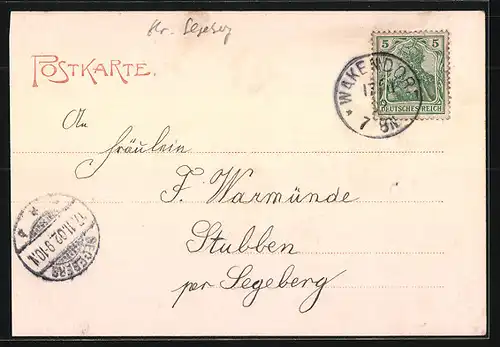 Kr. Segeberg
POSTKARTE.
5 5
DEUTSCHES REICH
* WAKENDORF
7 8N
An
Fräulein
F. Warmünde
Stubben
per Segeberg
SEGEBERG
17.11.02.9-10N.